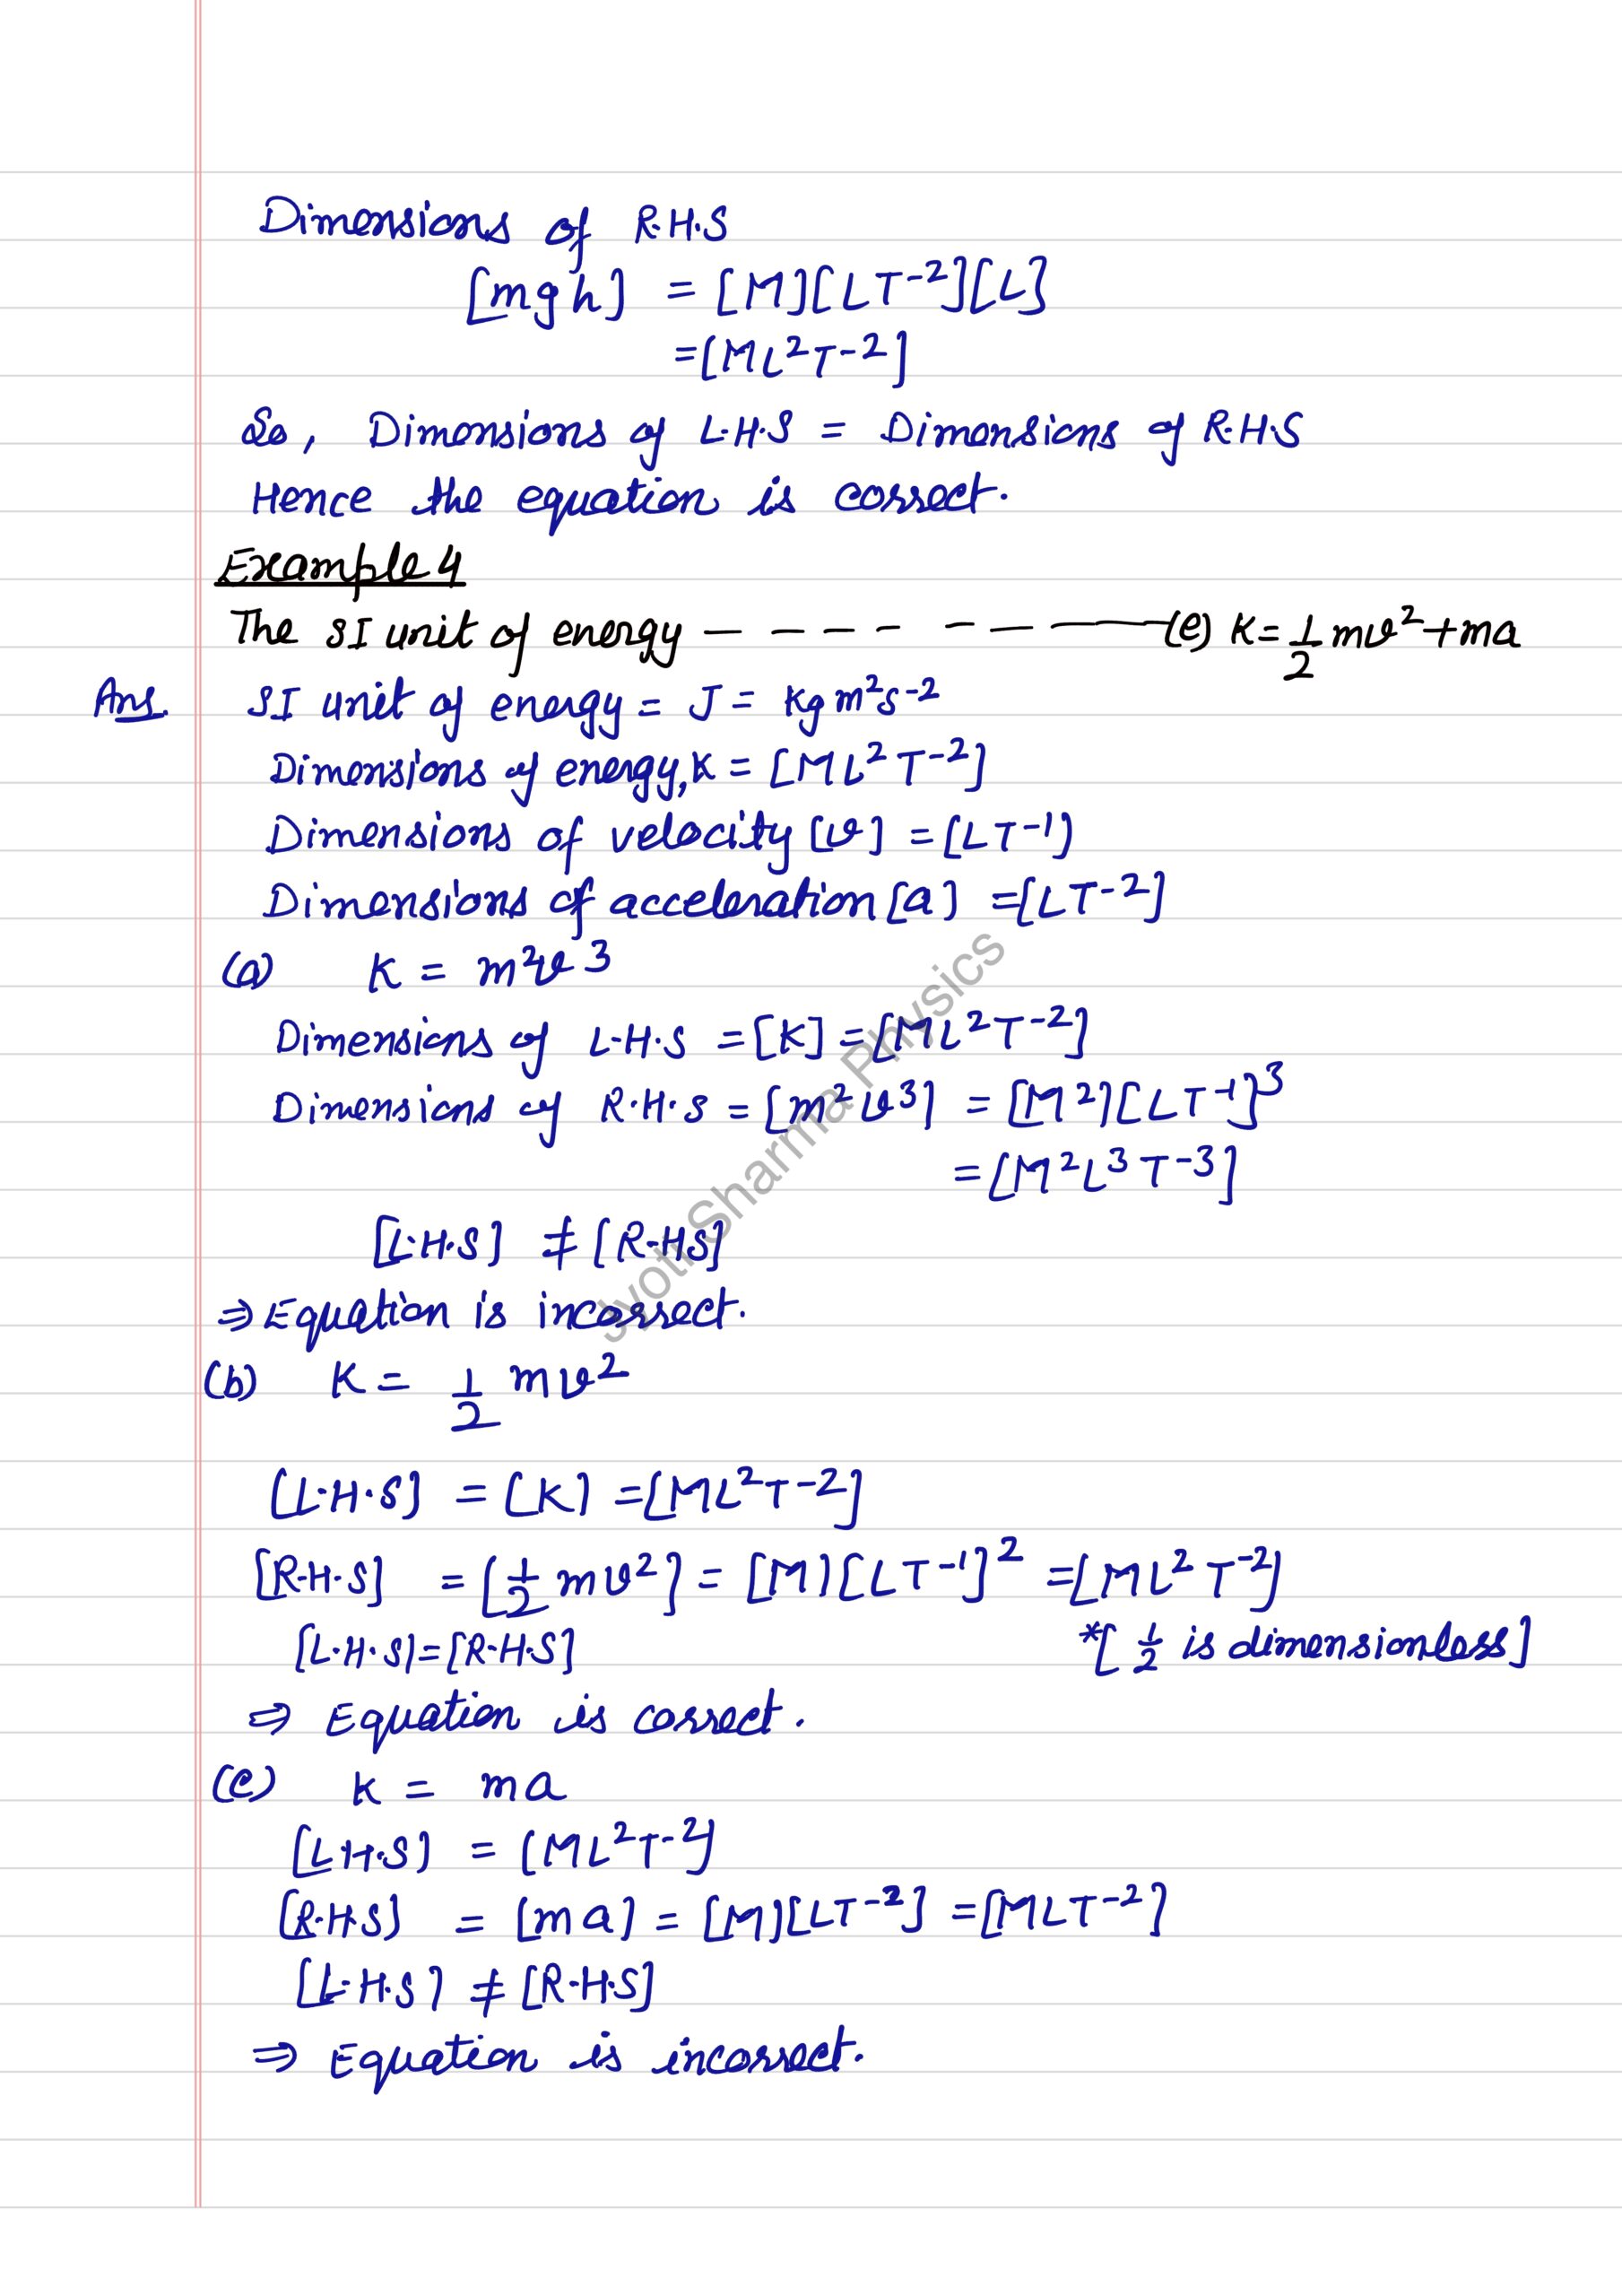 Dimensions of R.H.S
[mgh] = [M][LT⁻²][L]
=[ML²T⁻²]
So, Dimensions of L.H.S = Dimensions of R.H.S
Hence the equation is correct.
Example 4
The SI unit of energy — — — — — — — (e) K = 1/2 mv² + ma
Ans. SI unit of energy = J = Kg m²s⁻²
Dimensions of energy, K = [ML²T⁻²]
Dimensions of velocity [v] = [LT⁻¹]
Dimensions of acceleration [a] = [LT⁻²]
(a) K = m²v³
Dimensions of L.H.S = [K] = [ML²T⁻²]
Dimensions of R.H.S = [m²v³] = [M²][LT⁻¹]³
= [M²L³T⁻³]
[L.H.S] ≠ [R.HS]
⇒ Equation is incorrect.
(b) K = 1/2 mv²
[L.H.S] = [K] = [ML²T⁻²]
[R.H.S] = [1/2 mv²] = [M][LT⁻¹]² = [ML²T⁻²]
[L.H.S] = [R.H.S] *[1/2 is dimensionless]
⇒ Equation is correct.
(c) K = ma
[L.H.S] = [ML²T⁻²]
[R.H.S] = [ma] = [M][LT⁻²] = [MLT⁻²]
[L.H.S] ≠ [R.H.S]
⇒ Equation is incorrect.
Jyoti Sharma Physics